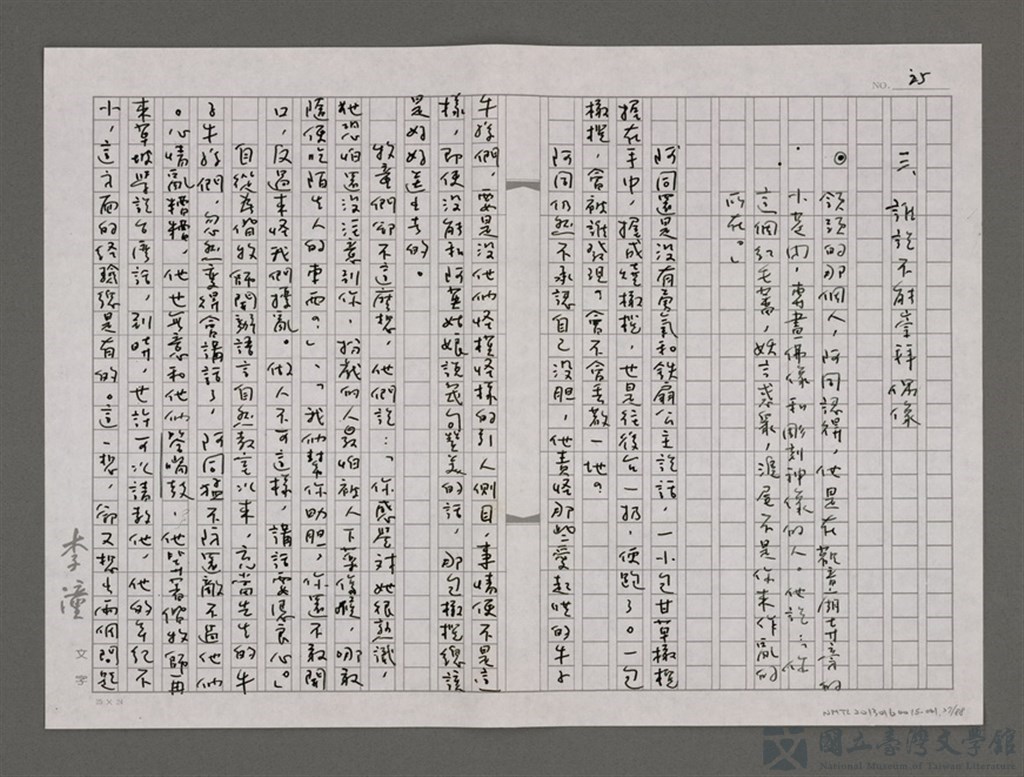 NO. 35
三、誰說不能崇拜偶像
◉領頭的那個人，阿同認得，他是在觀音廟廿音的
小巷內，專畫佛像和彫刻神像的人。他說：「你
這個紅毛蕃，妖言惑眾，這尾不是你來作亂的
所在。」
阿同還是沒有勇氣和鐵扇公主說話，一小包甘草橄欖
握在手中，握成燒橄欖，也是往後台一扔，便跑了。一包
橄欖，會被誰發現？會不會丟散一地？
阿同仍然不承認自己沒胆，他責怪那些愛起哄的牛子
牛孫們，要是沒他們怪模怪樣的引人側目，事情便不是這
樣，即使沒能和阿英姑娘說幾句整美的話，那包橄欖總該
是好好送出去的。
牧童們卻不這麼想，他們說：「你感覺對她很熟識，
她恐怕還沒注意到你，扮戲的人最怕被人下藥傷喉，哪敢
隨便吃陌生人的東西？」、「我們幫你助胆，你還不敢開
口，反過來怪我們擾亂。做人不可這樣，講話要憑良心。」
自從為偕牧師開辦語言自然教室以來，充當先生的牛
子牛孫們，忽然變得會講話了，阿同猛不防還敵不過他們
。心情亂糟糟，他也無意和他們答嘴鼓，他等著偕牧師再
來草坡學說台灣話，到時，也許可以請教他，他的年紀不
小，這方面的經驗總是有的。這一想，卻又想出兩個問題
李潼
文字
25 × 24
國立臺灣文學館
National Museum of Taiwan Literature